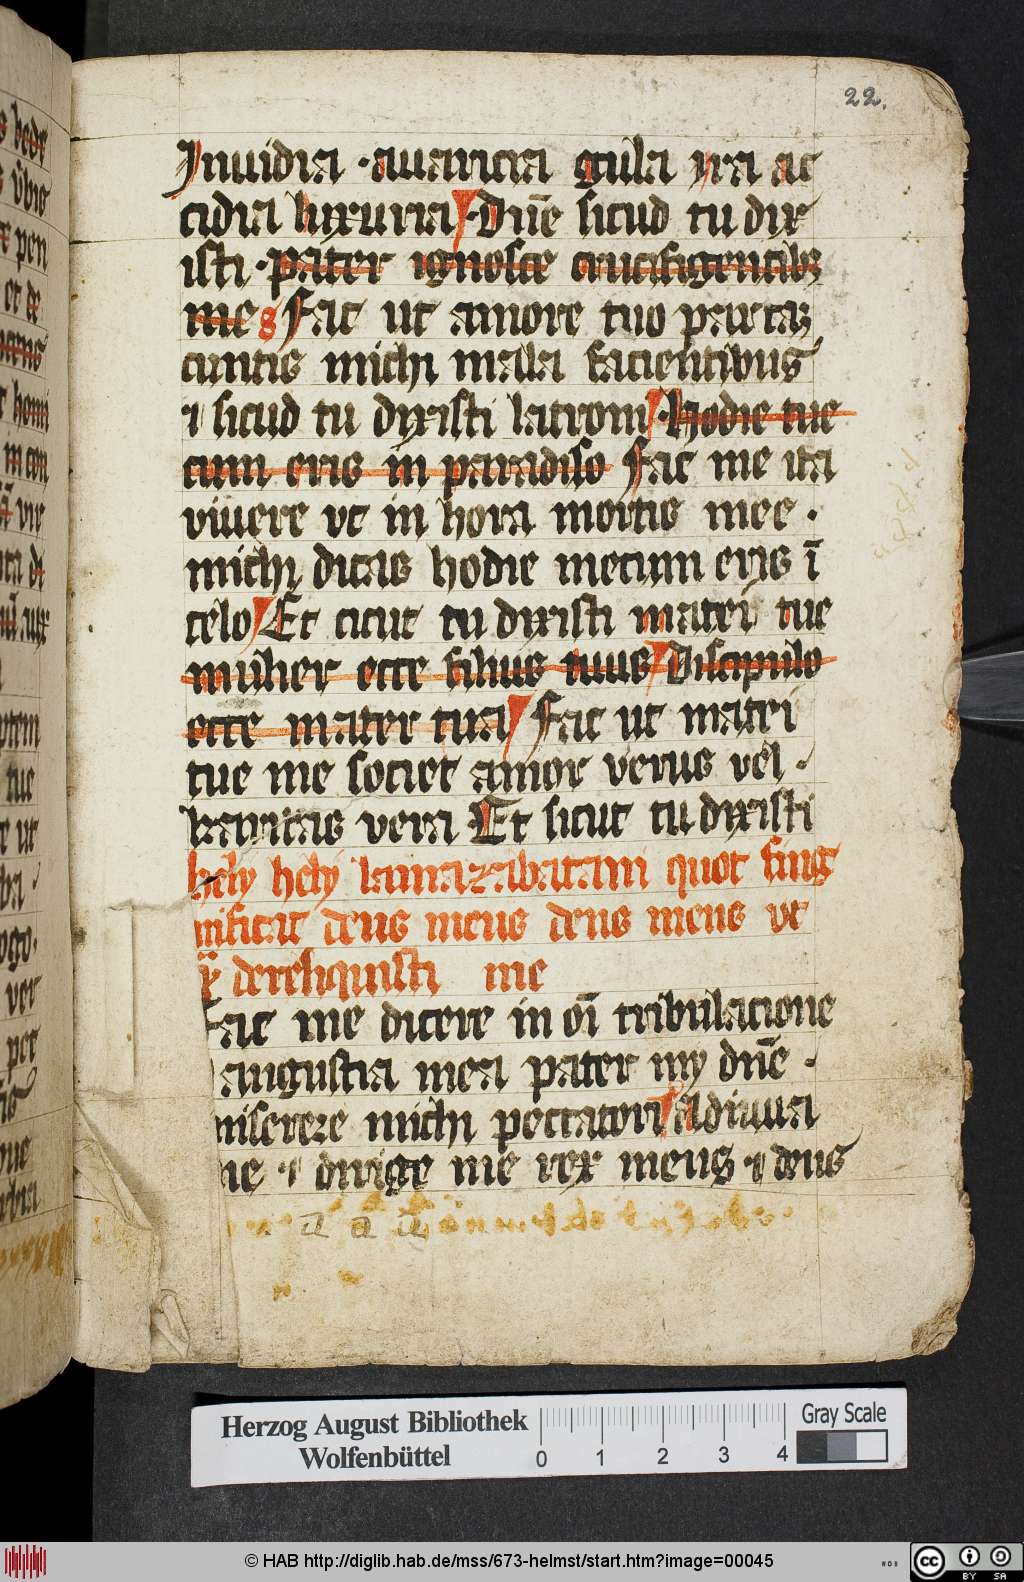 22.
Jnuidia · auaricia gula yra ac
cidia luxuria · Dn̄e sicud tu dix
isti · pater ignosce crucifigentibꝫ
me s Fac ut amore tuo parcaꝫ
cuntis michi mala facientibus
⁊ sicud tu dyxisti latroni · Hodie tue
cum eris in paradiso Fac me ita
viuere vt in hora mortis mee ·
michi dicas hodie mecum eris ī
celo Et cicut tu dixisti matri tue
mulier ecce filius tuus Discipulo
ecce mater tua Fac ut matri
tue me societ amor verus vel ·
karitas vera · Et sicut tu dyxisti
hely hely lamazabatani quot sing
nificat deus meus deus meus vt
dereliquisti me
Fac me dicere in oī tribulacione
angustia mea pater my dn̄e ·
miserere michi peccatori Adiuua
me · ⁊ dirige me rex meus · ⁊ deus
a a a
Herzog August Bibliothek
Wolfenbüttel
0 1 2 3 4
Gray Scale
© HAB http://diglib.hab.de/mss/673-helmst/start.htm?image=00045
WDB
cc BY SA